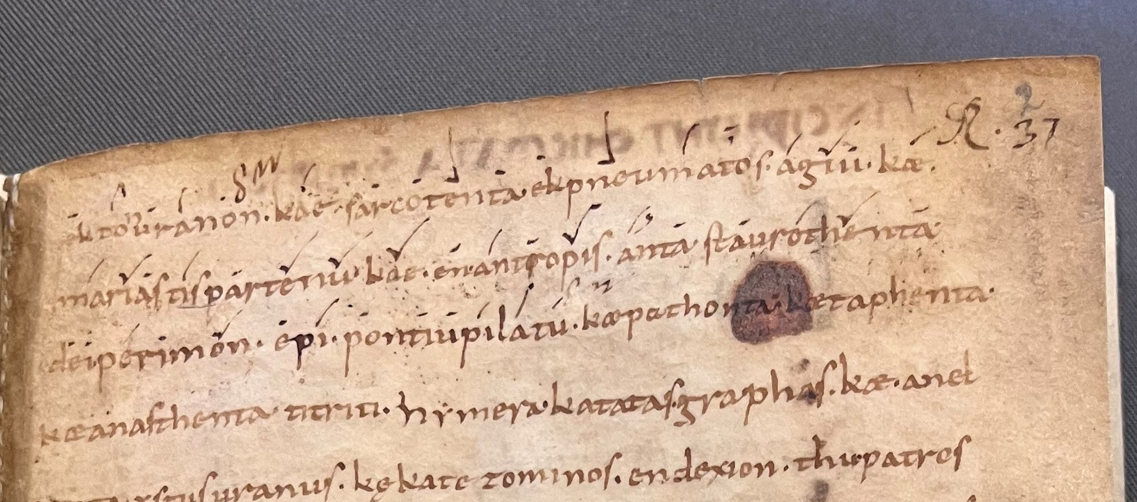 R. 37
ektoniranon. kae sarcotenta. ekpneumatos. agiu. kæ.
mariastis parteniu. kae. enantropis. anta staurothenta
deiperimon. epi. pontiupilatu. kæpathonta. kætaphenta.
kæanasthenta titriti. hymera. katatas. graphas. kæ. anel
uranus. kękate zominos. endexion. thupatros